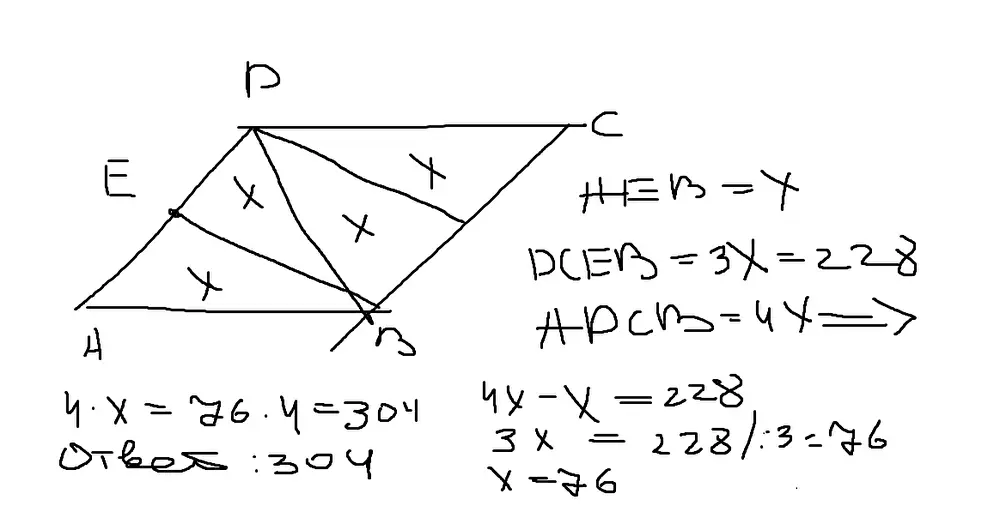 D
C
E
X
X
X
X
A
B
AEB = X
DCEB = 3X = 228
ADCB = 4X =>
4 · X = 76 · 4 = 304
Ответ : 304
4X - X = 228
3X = 228 / :3 = 76
X = 76